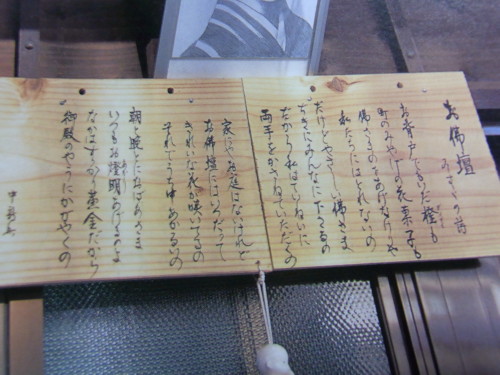 お佛壇
みすゞの詩
お背戸でもいだ橙も
町のみやげの花菓子も
佛さまのをあげなけりや
私たちにはとれないの
だけどやさしい佛さま
ぢきにみんなに下さるの
だから私はていねいに
両手をかさねていただくの
家にやお庭はないけれど
お佛壇にはいつだつて
きれいな花が咲いてるの
それでうち中あかるいの
朝と晩とにおばあさま
いつもお燈明あげるのよ
なかはすつかり黄金だから
御殿のやうにかがやくの